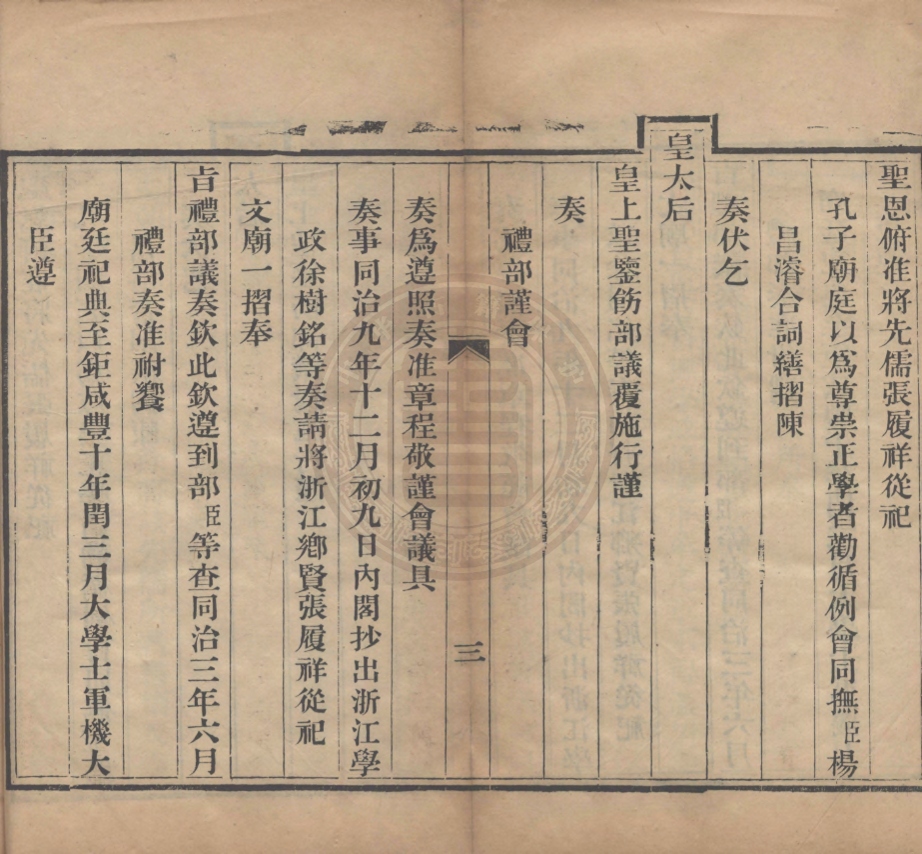 聖恩俯准將先儒張履祥從祀
孔子廟庭以爲尊崇正學者勸循例會同撫臣楊
昌濬合詞繕摺陳
奏伏乞
皇太后
皇上聖鑒飭部議覆施行謹
奏
禮部謹會
三
奏爲遵照奏准章程敬謹會議具
奏事同治九年十二月初九日內閣抄出浙江學
政徐樹銘等奏請將浙江鄉賢張履祥從祀
文廟一摺奉
旨禮部議奏欽此欽遵到部臣等查同治三年六月
禮部奏准祔饗
廟廷祀典至鉅咸豐十年閏三月大學士軍機大
臣遵